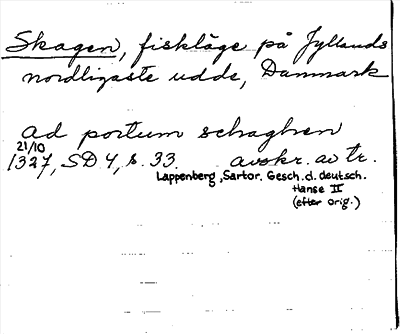 Skagen, fiskläge på Jyllands
nordligaste udde, Danmark
ad portum schaghen
21/10
1327, SD 4, s. 33. avskr. av tr.
Lappenberg, Sartor. Gesch. d. deutsch.
Hanse II
(efter orig.)